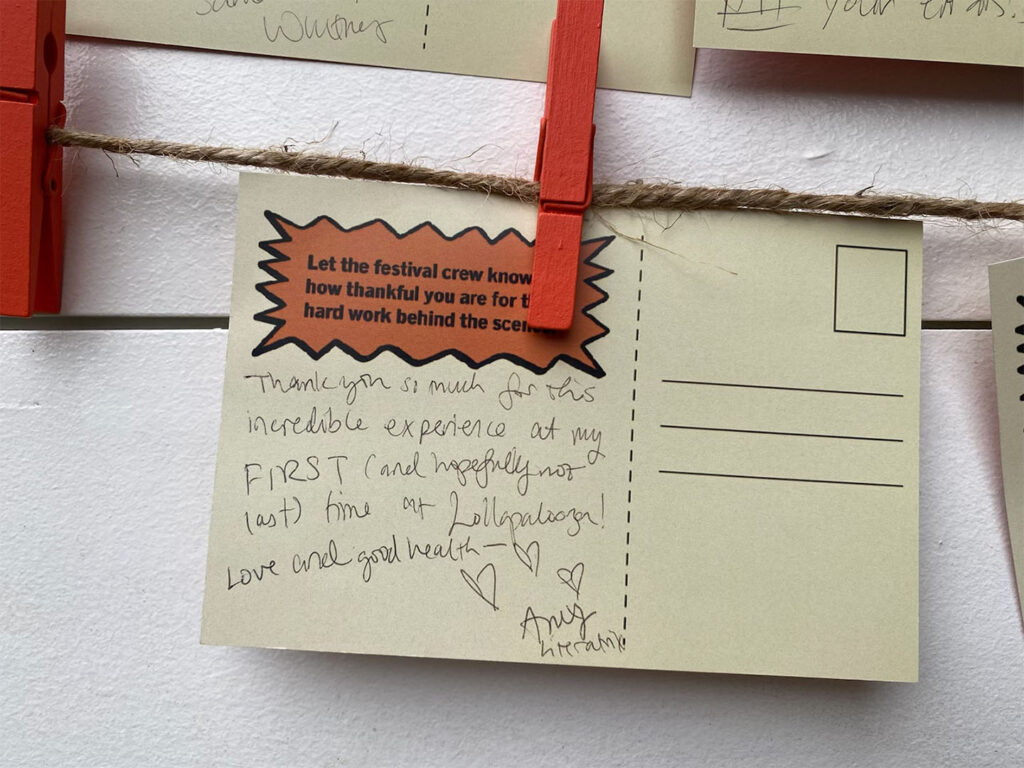 Whitney
your
Let the festival crew know
how thankful you are for
hard work behind the
Thank you so much for this
incredible experience at my
FIRST (and hopefully not
last) time at Lollapalooza!
Love and good health –
Amy